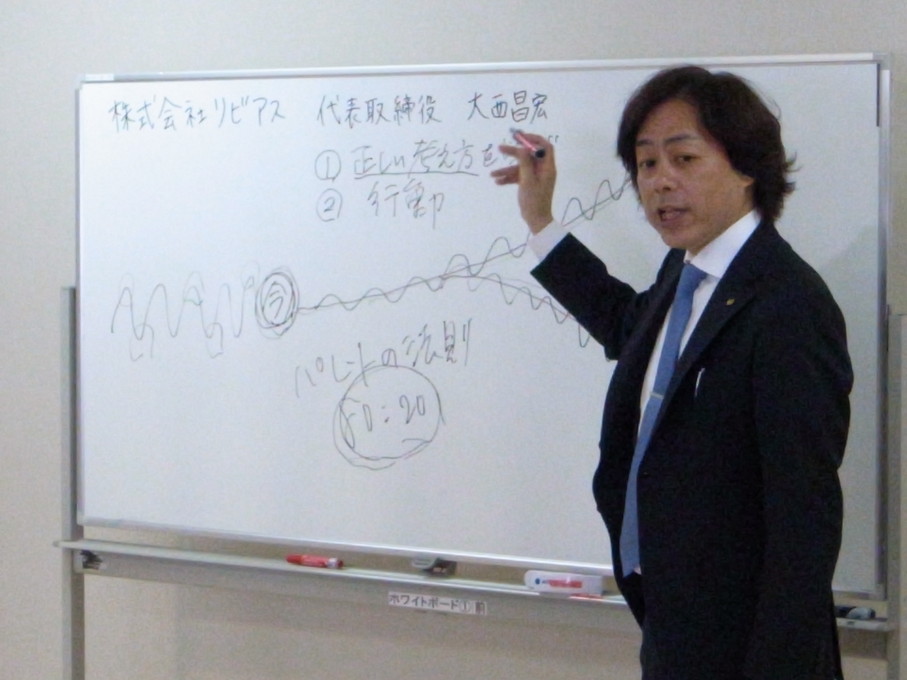 株式会社リビアス 代表取締役 大西昌宏
① 正しい考え方を
② 行動
今
パレートの法則
80:20
ホワイトボード① 前